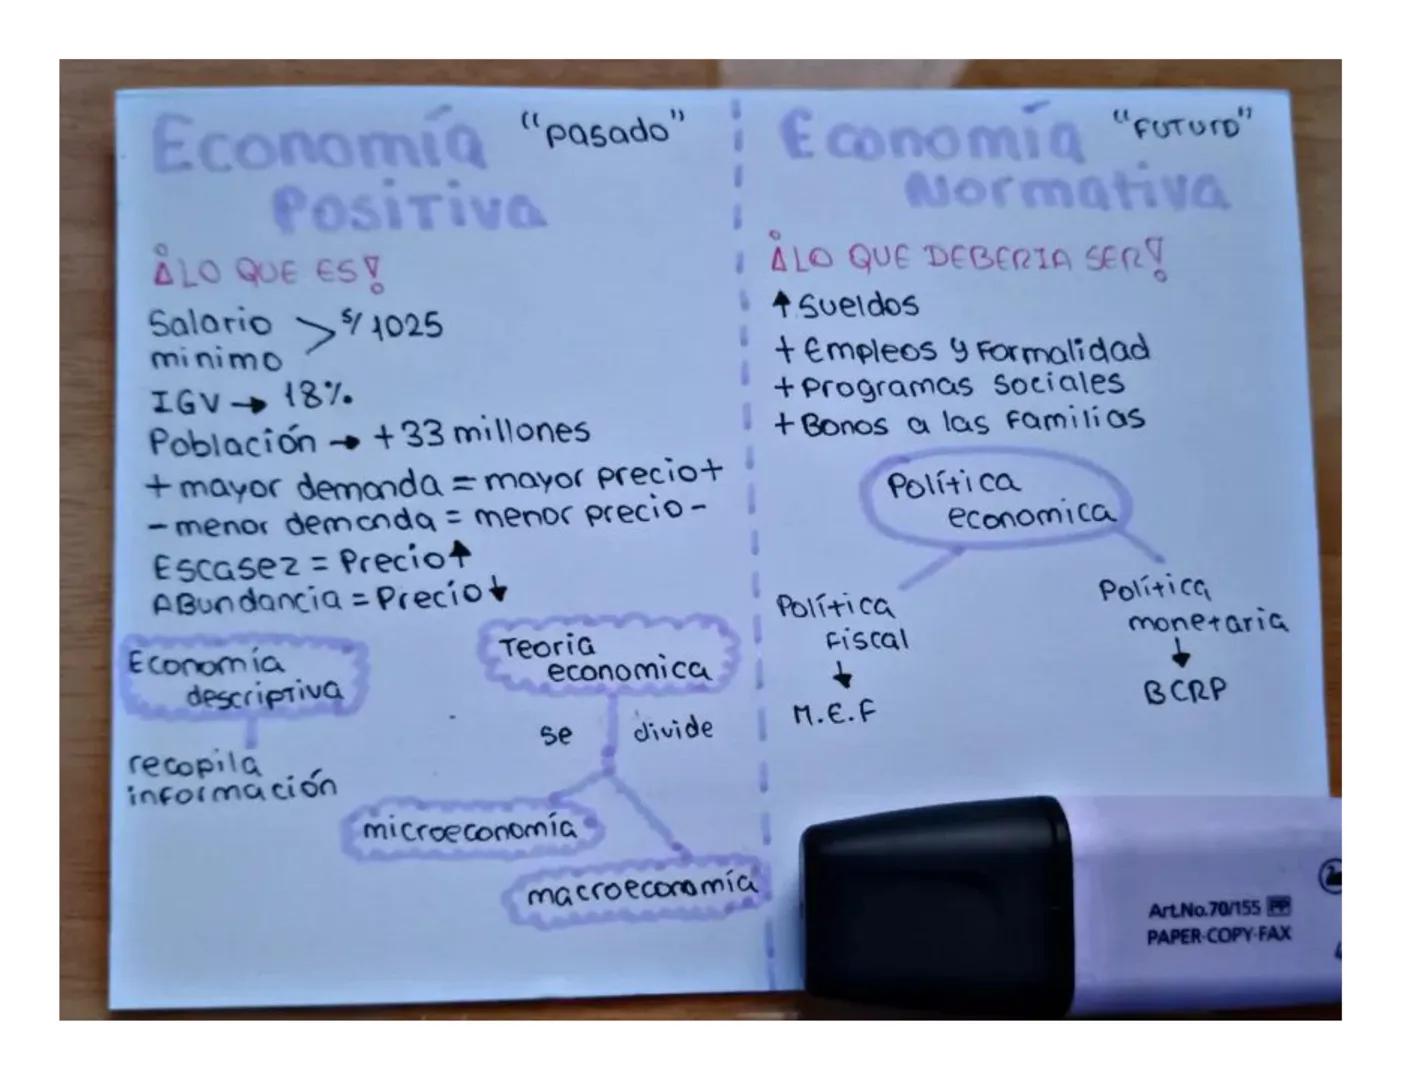 Economía "pasado"
Positiva
¡LO QUE ES!
Salario > S/ 1025
minimo
IGV → 18%
Población → +33 millones
+ mayor demanda = mayor precio +
- menor demanda = menor precio -
Escasez = Precio ↑
ABundancia = Precio ↓
Economía
descriptiva
recopila
información
Teoria
economica
se divide
microeconomía
macroeconomía
Economía "Futuro"
Normativa
¡LO QUE DEBERIA SER!
↑ Sueldos
+ Empleos y Formalidad
+ Programas Sociales
+ Bonos a las Familias
Política
economica
Política
Fiscal
↓
M.E.F
Política
monetaria
↓
BCRP
Art.No.70/155 PP
PAPER-COPY-FAX